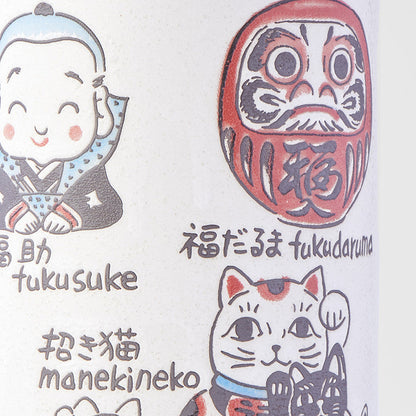 福
助
fukusuke
福だるま fukudaruma
招き猫
manekineko